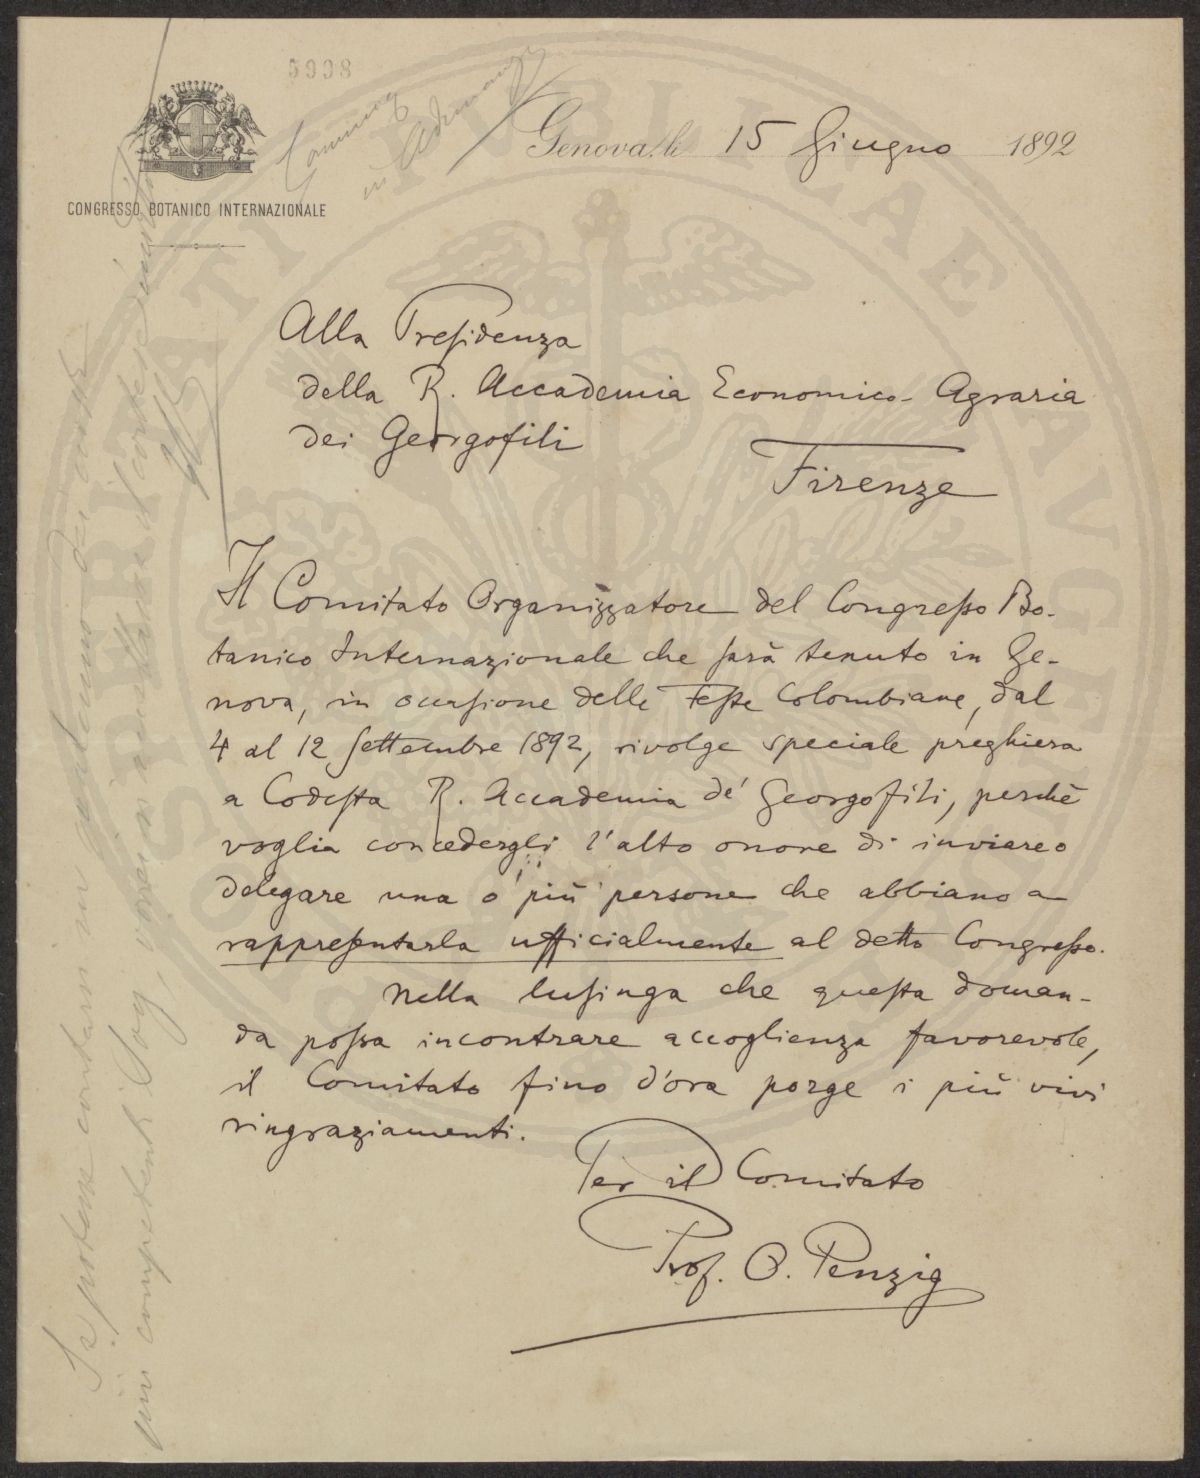 5998
Genova, li 15 Giugno 1892
CONGRESSO BOTANICO INTERNAZIONALE
Alla Presidenza
della R. Accademia Economico-Agraria
dei Georgofili
Firenze
Il Comitato Organizzatore del Congresso Bo-
tanico Internazionale che sarà tenuto in Ge-
nova, in occasione delle Feste Colombiane, dal
4 al 12 Settembre 1892, rivolge speciale preghiera
a Codesta R. Accademia de' Georgofili, perchè
voglia concedergli l'alto onore di inviare o
delegare una o più persone che abbiano a
rappresentarla ufficialmente al detto Congresso.
Nella lusinga che questa doman-
da possa incontrare accoglienza favorevole,
il Comitato fino d'ora porge i più vivi
ringraziamenti.
Per il Comitato
Prof. O. Penzig